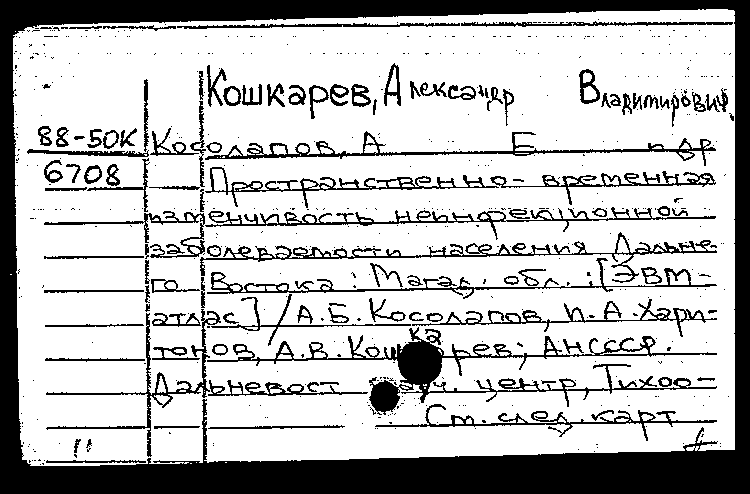 Кошкарев, Александр Владимирович
88-50К Косолапов, А Б и др
6708 Пространственно-временная
изменчивость неинфекционной
заболеваемости населения Дальне-
го Востока: Магад. обл.: [ЭВМ-
атлас] / А.Б. Косолапов, П.А. Хари-
тонов, А.В. Кошкарев; АН СССР.
Дальневост науч. центр, Тихоо-
См. след. карт